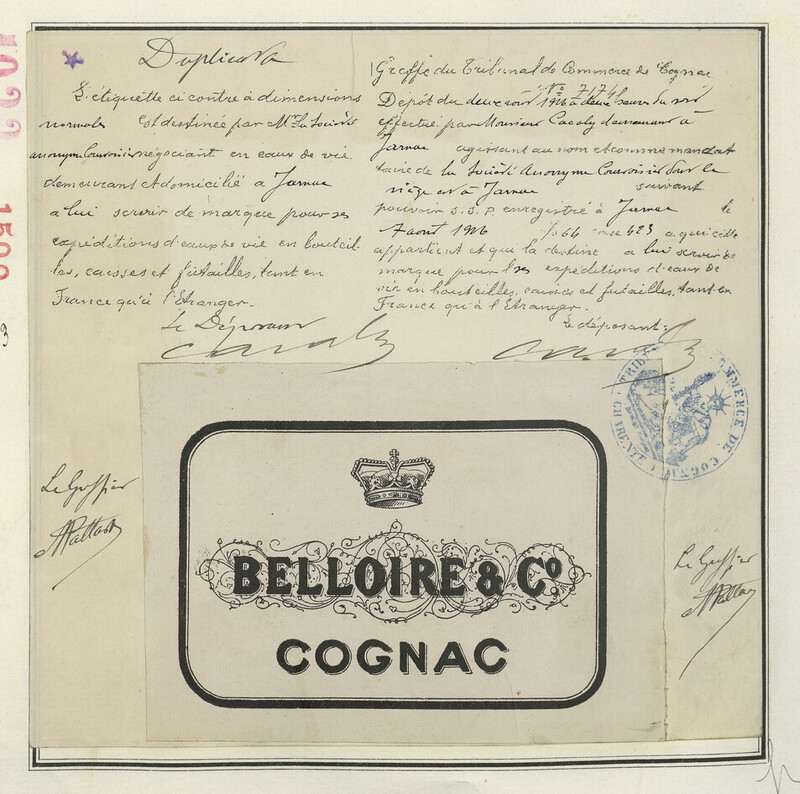 Duplicata
L'étiquette ci contre à dimensions
normales est destinée par Mrs La Société
anonyme Courvoisier négociant en eaux de vie
demeurant et domicilié à Jarnac
a lui servir de marque pour ses
expéditions d'eaux de vie en bouteil-
les, caisses et futailles, tant en
France qu'à l'Etranger.
Le Déposant
Greffe du Tribunal de Commerce de Cognac
No 7174
Dépôt du deux août 1926 à deux heures du soir
effectué par Monsieur demeurant à
Jarnac agissant au nom et comme mandat
taire de la Société Anonyme Courvoisier dont le
siège est à Jarnac suivant
pouvoir S.S.P. enregistré à Jarnac le
7 août 1926 fo 66 case 423 a qui elle
appartient et que la destine a lui servir de
marque pour ses expéditions d'eaux de
vie en bouteilles, caisses et futailles, tant en
France qu'à l'Etranger.
Le déposant
TRIBUNAL COMMERCE DE COGNAC
CHARENTE
Le Greffier
BELLOIRE & Co
COGNAC
Le Greffier
1500
3